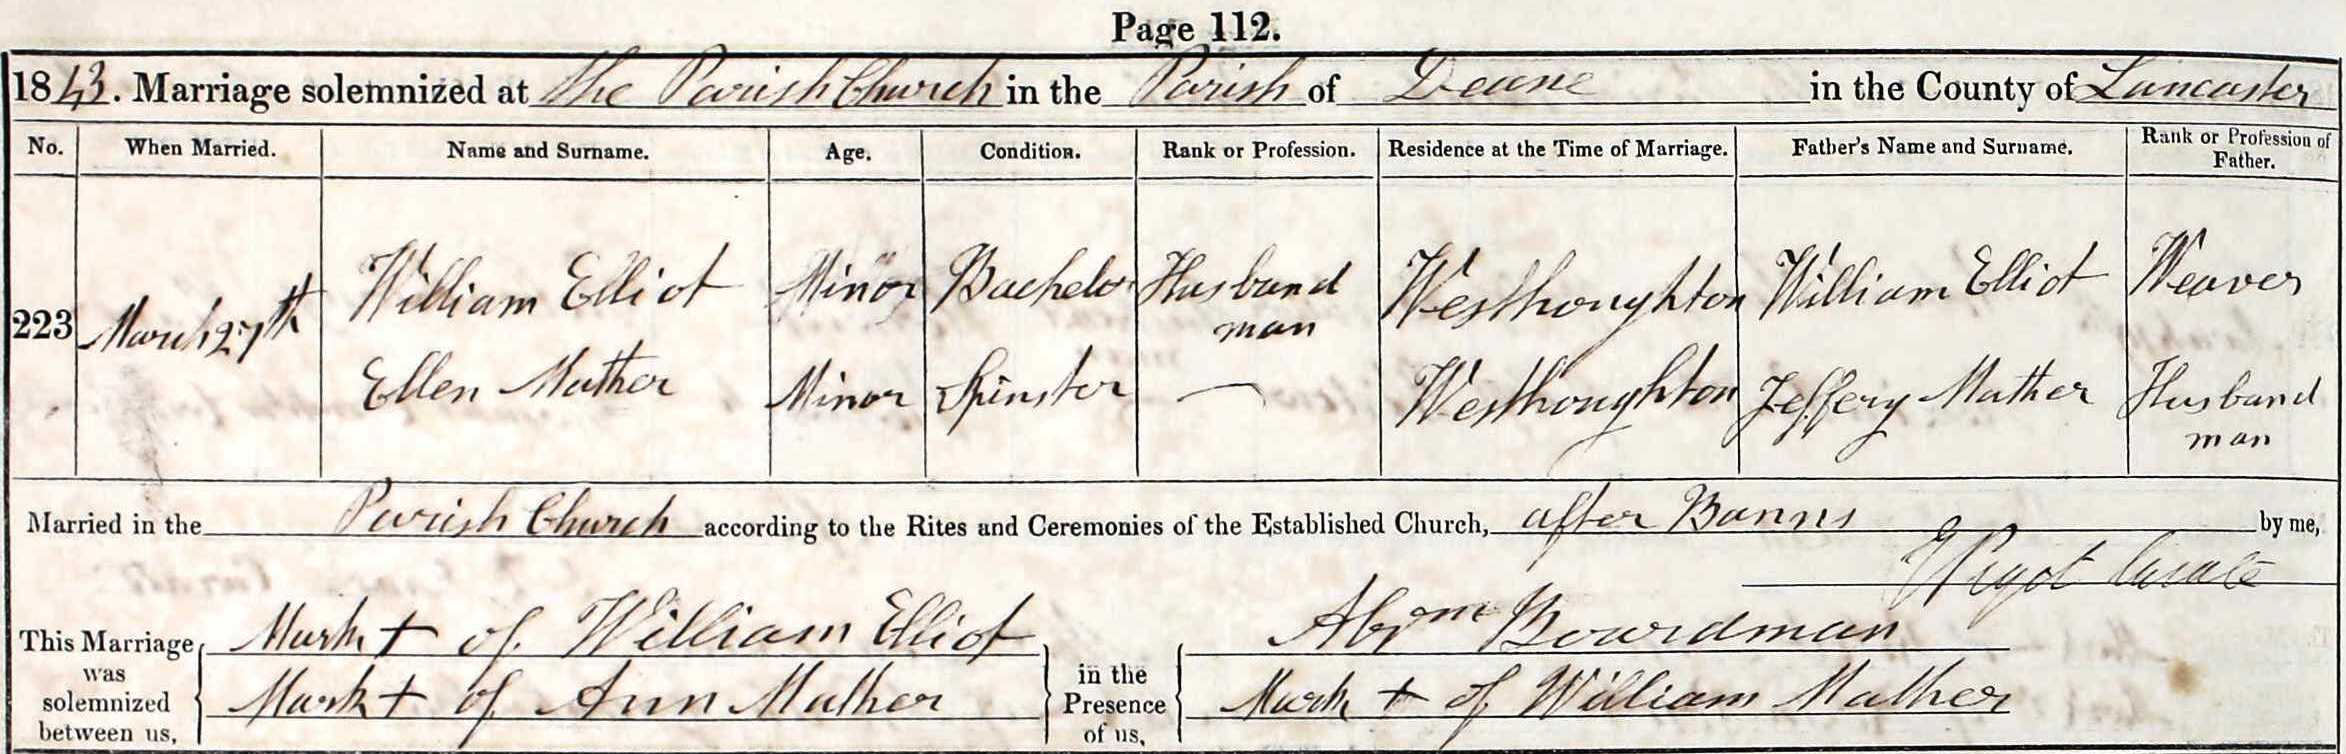 Page 112.
1843. Marriage solemnized at the Parish Church in the Parish of Deane in the County of Lancaster
No. When Married. Name and Surname. Age. Condition. Rank or Profession. Residence at the Time of Marriage. Father's Name and Surname. Rank or Profession of Father.
223 March 27th William Elliot Minor Bachelor Husband man Westhoughton William Elliot Weaver
Ellen Mather Minor Spinster — Westhoughton Jeffery Mather Husband man
Married in the Parish Church according to the Rites and Ceremonies of the Established Church, after Banns by me,
Curate
This Marriage was solemnized between us, Mark + of William Elliot in the Presence of us, Abrm Boardman
Mark + of Ann Mather Mark + of William Mather